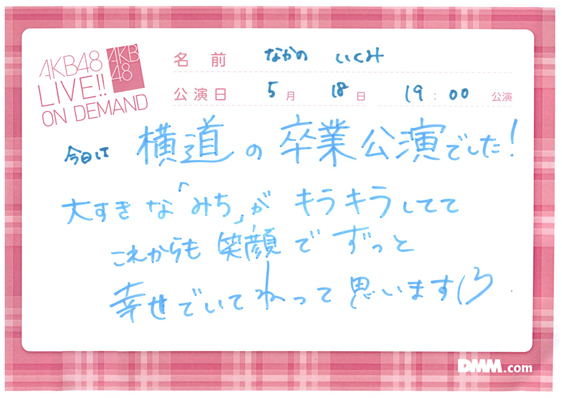 AKB48
LIVE!!
ON DEMAND
AKB
48
名前 なかの いくみ
公演日 5月 18日 19:00 公演
今日は 横道の卒業公演でした!
大すきな「みち」が キラキラしてて
これからも 笑顔で ずっと
幸せでいてねって 思います
DMM.com